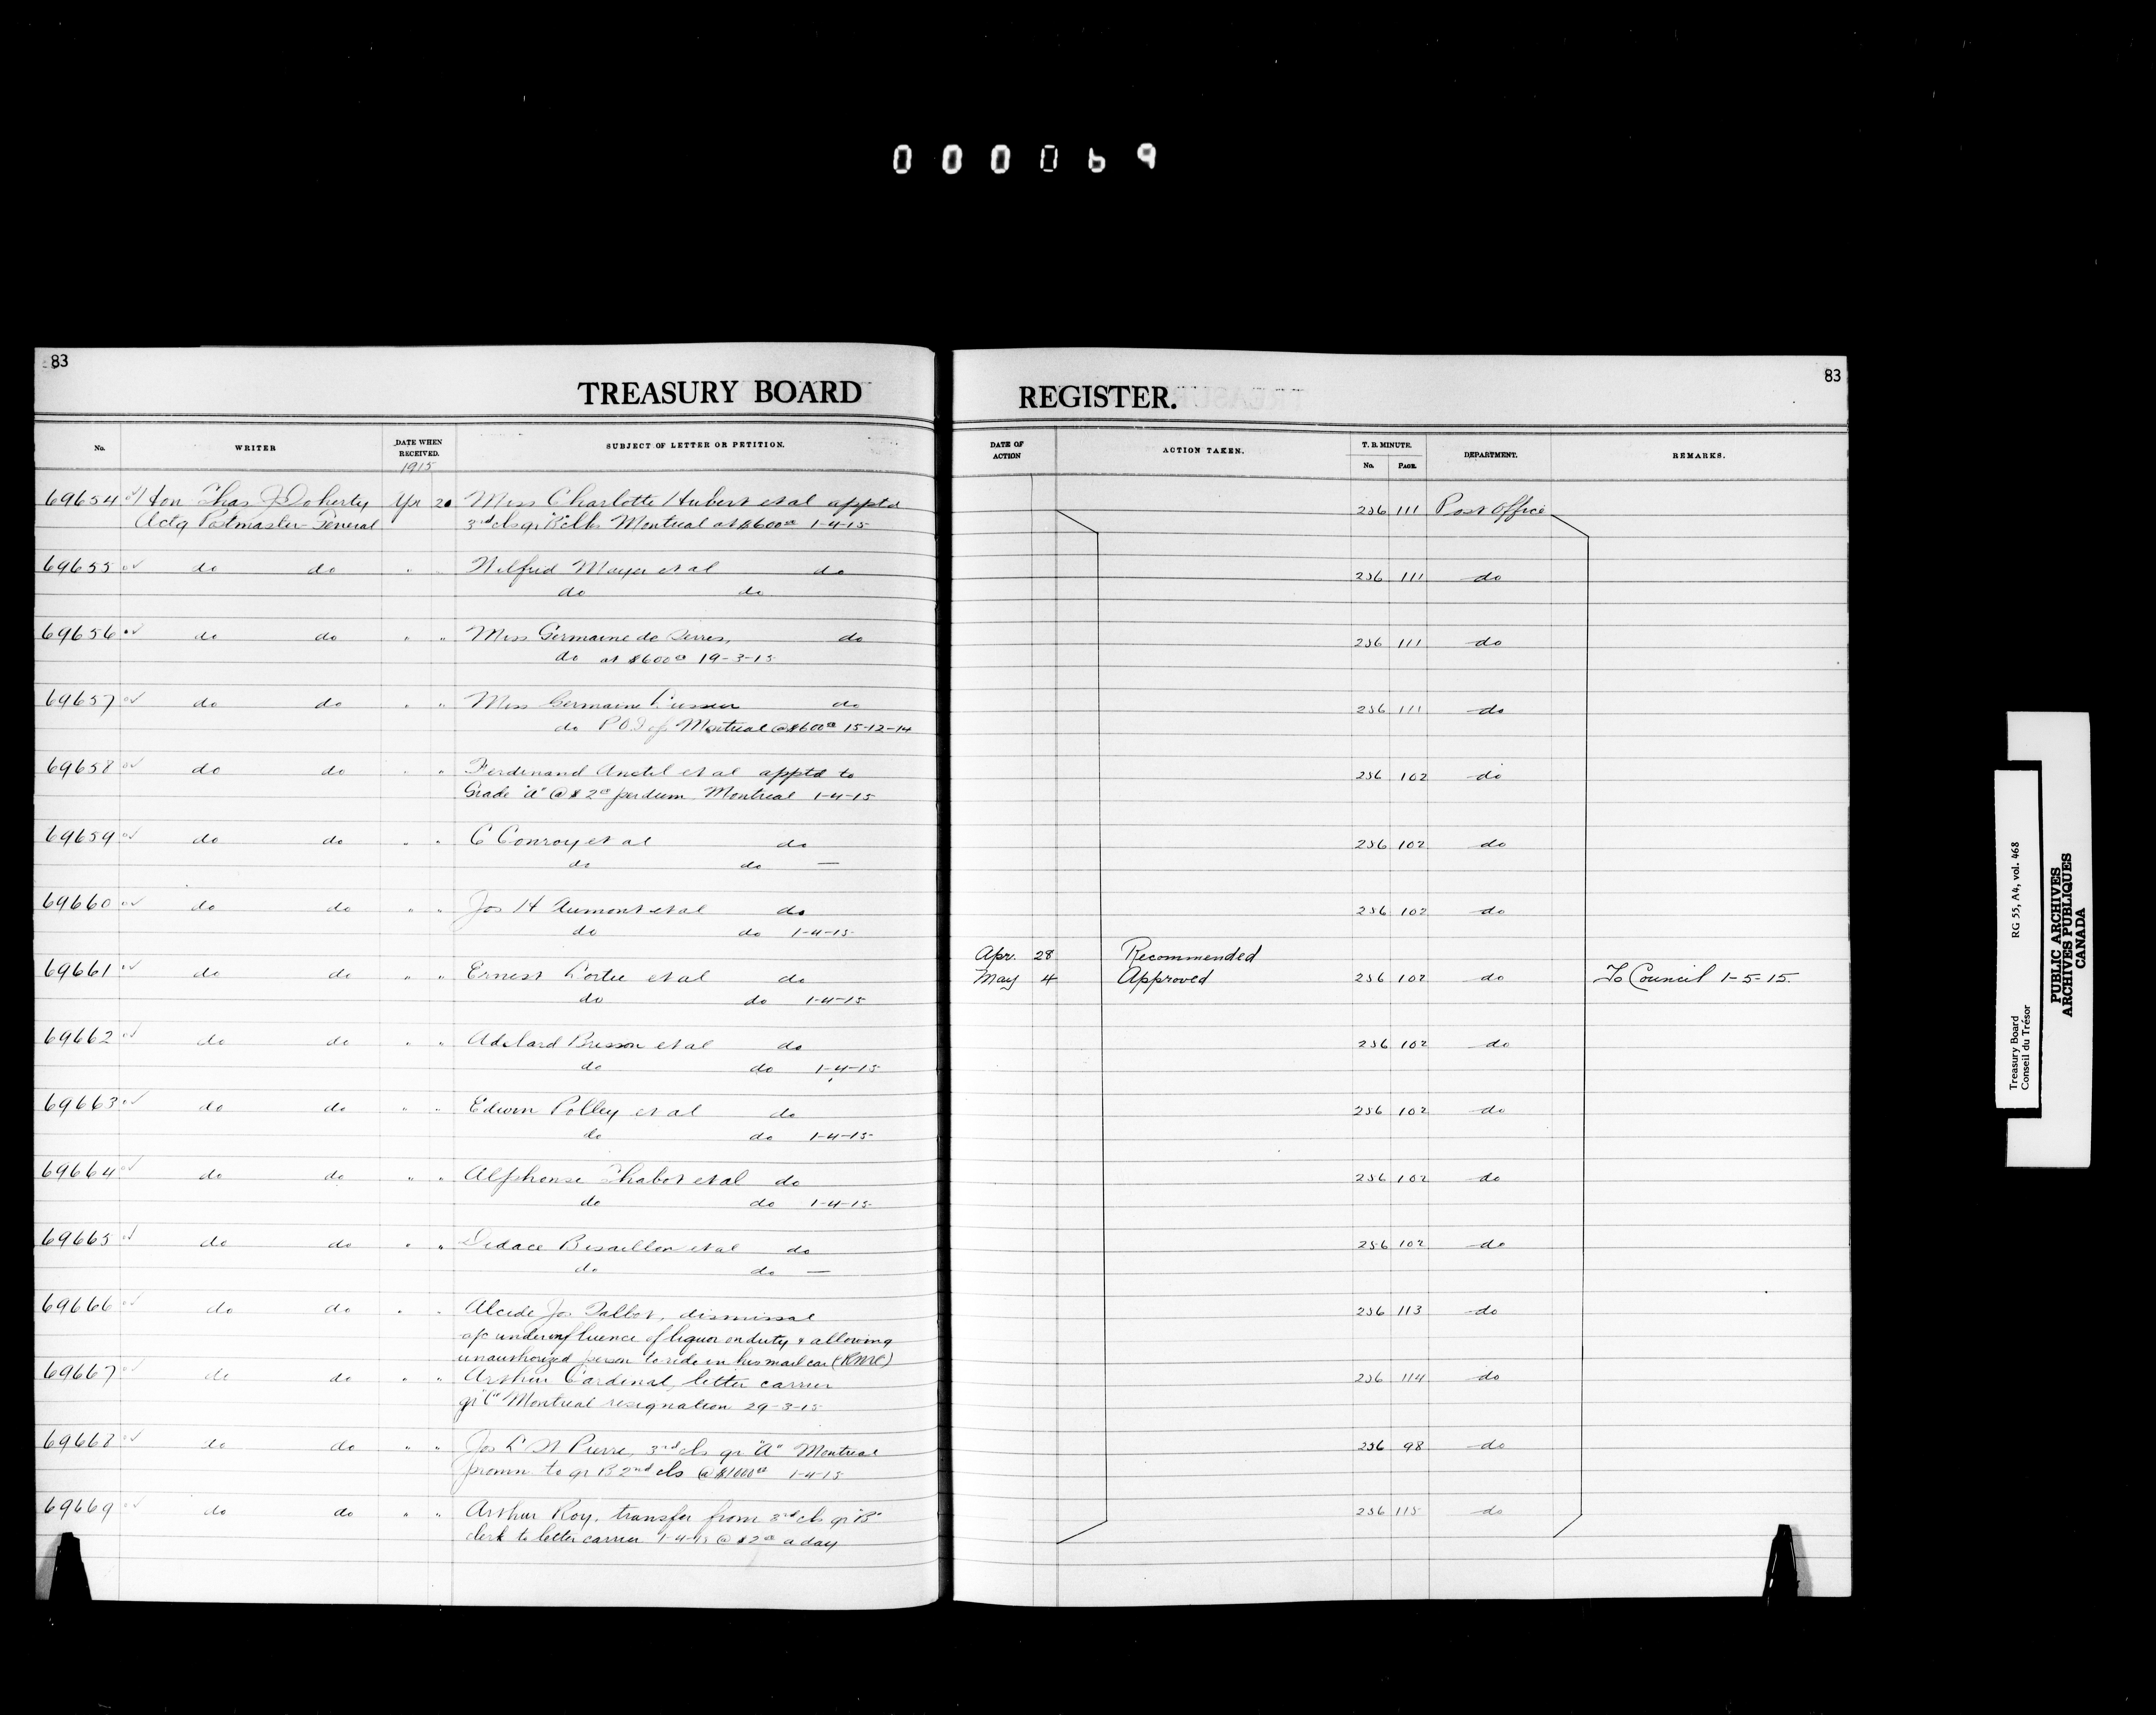 000069
83
83
TREASURY BOARD REGISTER.
No. WRITER DATE WHEN RECEIVED. SUBJECT OF LETTER OR PETITION. DATE OF ACTION ACTION TAKEN. T. B. MINUTE. No. PAGE. DEPARTMENT. REMARKS.
1915
69654 Hon Chas J Doherty Apr 20 Miss Charlotte Hubert et al apptd 256 111 Post Office
Actg Postmaster-General 3rd cls gr "B" clk Montreal at $600 1-4-15
69655 do do " " Wilfrid Mayer et al do 256 111 do
do do
69656 do do " " Miss Germaine de Serres, do 256 111 do
do at $600 19-3-15
69657 do do " " Miss Germaine do 256 111 do
do P.O.I. of Montreal @ $600 15-12-14
69658 do do " " Ferdinand Anctil et al apptd to 256 102 do
Grade "A" @ $2 per diem Montreal 1-4-15
69659 do do " " C Conroy et al do 256 102 do
do do —
69660 do do " " Jos H Aumont et al do 256 102 do
do do 1-4-15
Apr. 28 Recommended
69661 do do " " Ernest et al do May 4 Approved 256 102 do To Council 1-5-15.
do do 1-4-15
69662 do do " " Adelard Brisson et al do 256 102 do
do do 1-4-15
69663 do do " " Edwin Polley et al do 256 102 do
do do 1-4-15
69664 do do " " Alphonse Chabot et al do 256 102 do
do do 1-4-15
69665 do do " " Didace Bisaillon et al do 256 102 do
do do —
69666 do do " " Alcide Jos Talbot, dismissal 256 113 do
a/c under influence of liquor on duty & allowing
unauthorized person to ride in his mail car (RMC)
69667 do do " " Arthur Cardinal, letter carrier 256 114 do
gr "C" Montreal resignation 29-3-15
69668 do do " " Jos L St Pierre, 3rd cls gr "A" Montreal 256 98 do
promn to gr B 2nd cls @ $1000 1-4-15
69669 do do " " Arthur Roy, transfer from 3rd cls gr "B" 256 115 do
clerk to letter carrier 1-4-15 @ $2 a day
Treasury Board RG 55, A4, vol. 468
Conseil du Trésor
PUBLIC ARCHIVES
ARCHIVES PUBLIQUES
CANADA